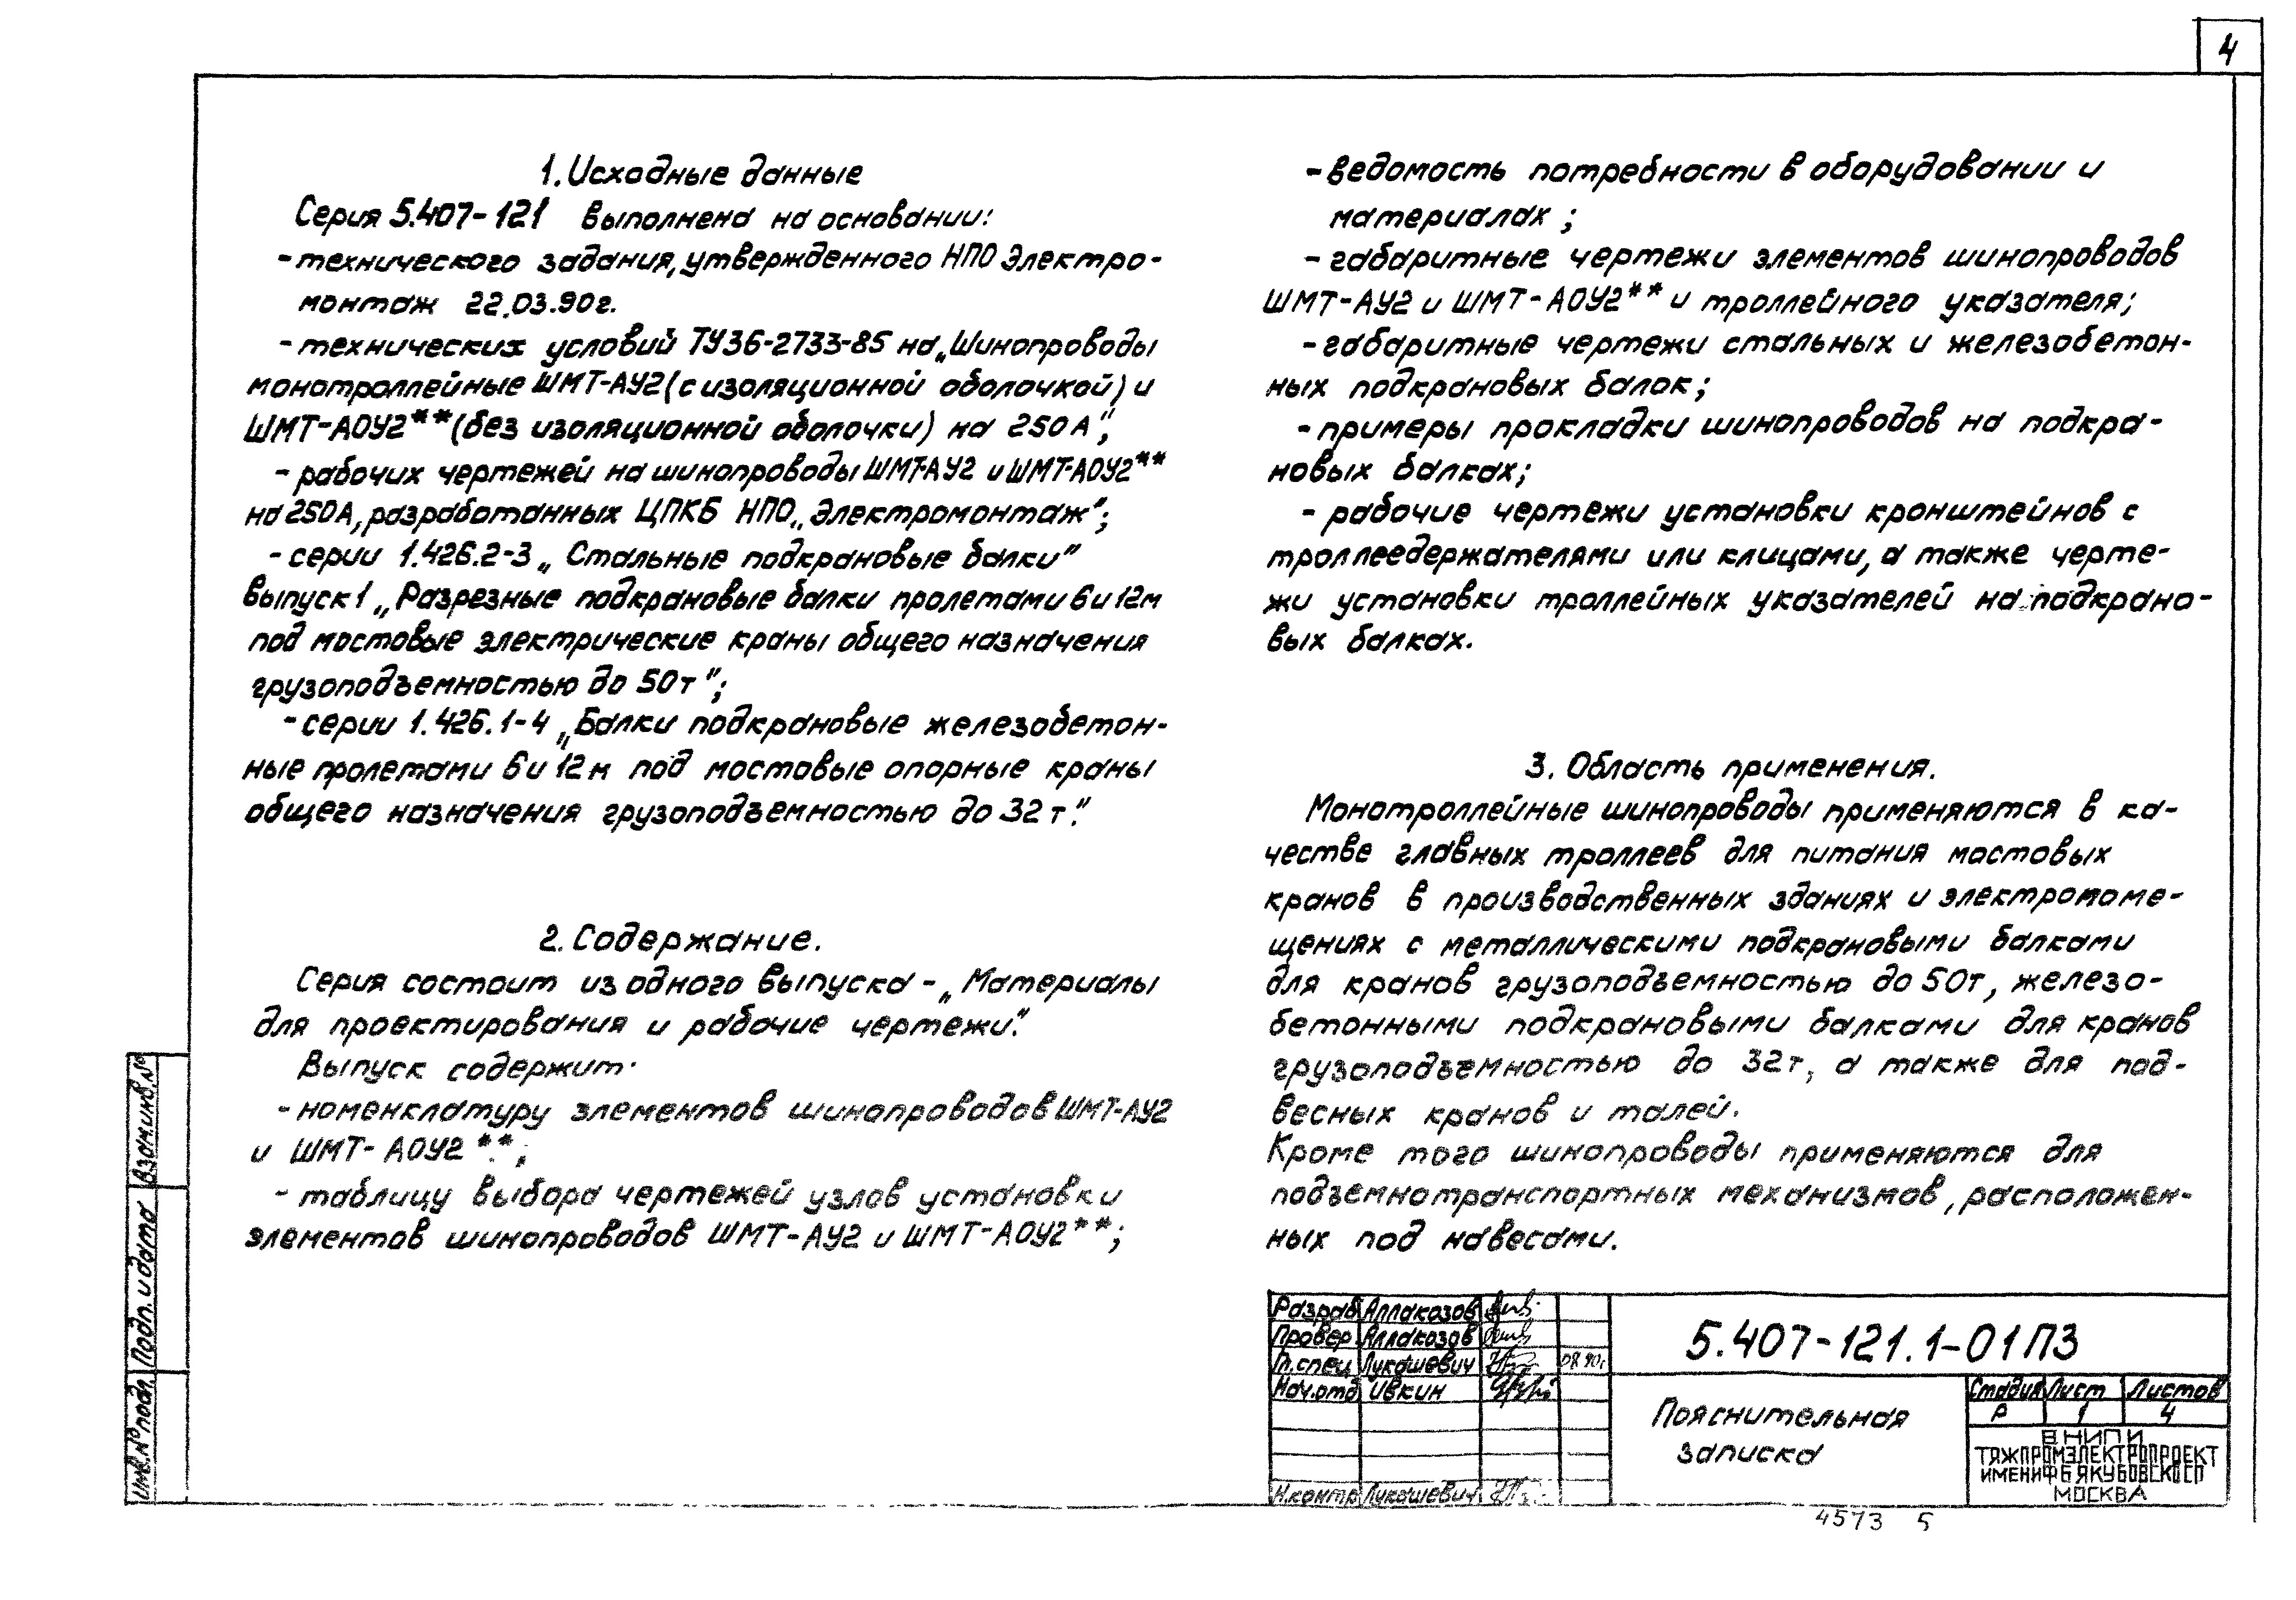 4
1. Исходные данные
Серия 5.407-121 выполнена на основании:
- технического задания, утвержденного НПО Электро-
монтаж 22.03.90г.
- технических условий ТУ36-2733-85 на „Шинопроводы
монотроллейные ШМТ-АУ2 (с изоляционной оболочкой) и
ШМТ-АОУ2** (без изоляционной оболочки) на 250А",
- рабочих чертежей на шинопроводы ШМТ-АУ2 и ШМТ-АОУ2**
на 250А, разработанных ЦПКБ НПО „Электромонтаж";
- серии 1.426.2-3 „Стальные подкрановые балки"
выпуск 1 „Разрезные подкрановые балки пролетами 6 и 12м
под мостовые электрические краны общего назначения
грузоподъемностью до 50т";
- серии 1.426.1-4 „Балки подкрановые железобетон-
ные пролетами 6 и 12м под мостовые опорные краны
общего назначения грузоподъемностью до 32т."
2. Содержание.
Серия состоит из одного выпуска - „Материалы
для проектирования и рабочие чертежи."
Выпуск содержит.
- номенклатуру элементов шинопроводов ШМТ-АУ2
и ШМТ-АОУ2**;
- таблицу выбора чертежей узлов установки
элементов шинопроводов ШМТ-АУ2 и ШМТ-АОУ2**;
- ведомость потребности в оборудовании и
материалах;
- габаритные чертежи элементов шинопроводов
ШМТ-АУ2 и ШМТ-АОУ2** и троллейного указателя;
- габаритные чертежи стальных и железобетон-
ных подкрановых балок;
- примеры прокладки шинопроводов на подкра-
новых балках;
- рабочие чертежи установки кронштейнов с
троллеедержателями или клицами, а также черте-
жи установки троллейных указателей на подкрано-
вых балках.
3. Область применения.
Монотроллейные шинопроводы применяются в ка-
честве главных троллеев для питания мостовых
кранов в производственных зданиях и электропоме-
щениях с металлическими подкрановыми балками
для кранов грузоподъемностью до 50т, железо-
бетонными подкрановыми балками для кранов
грузоподъемностью до 32т, а также для под-
весных кранов и талей.
Кроме того шинопроводы применяются для
подъемнотранспортных механизмов, расположен-
ных под навесами.
Взам.инв.№
Подп. и дата
Инв.№ подл.
Разраб Аллакозов
Провер. Аллакозов
Гл.спец Лукашевич 08.90г
Нач.отд Ивкин
Н.контр Лукашевич
5.407-121.1-01ПЗ
Пояснительная
записка
Стадия Лист Листов
Р 1 4
ВНИПИ
ТЯЖПРОМЭЛЕКТРОПРОЕКТ
ИМЕНИ Ф Б ЯКУБОВСКОГО
МОСКВА
4573 5